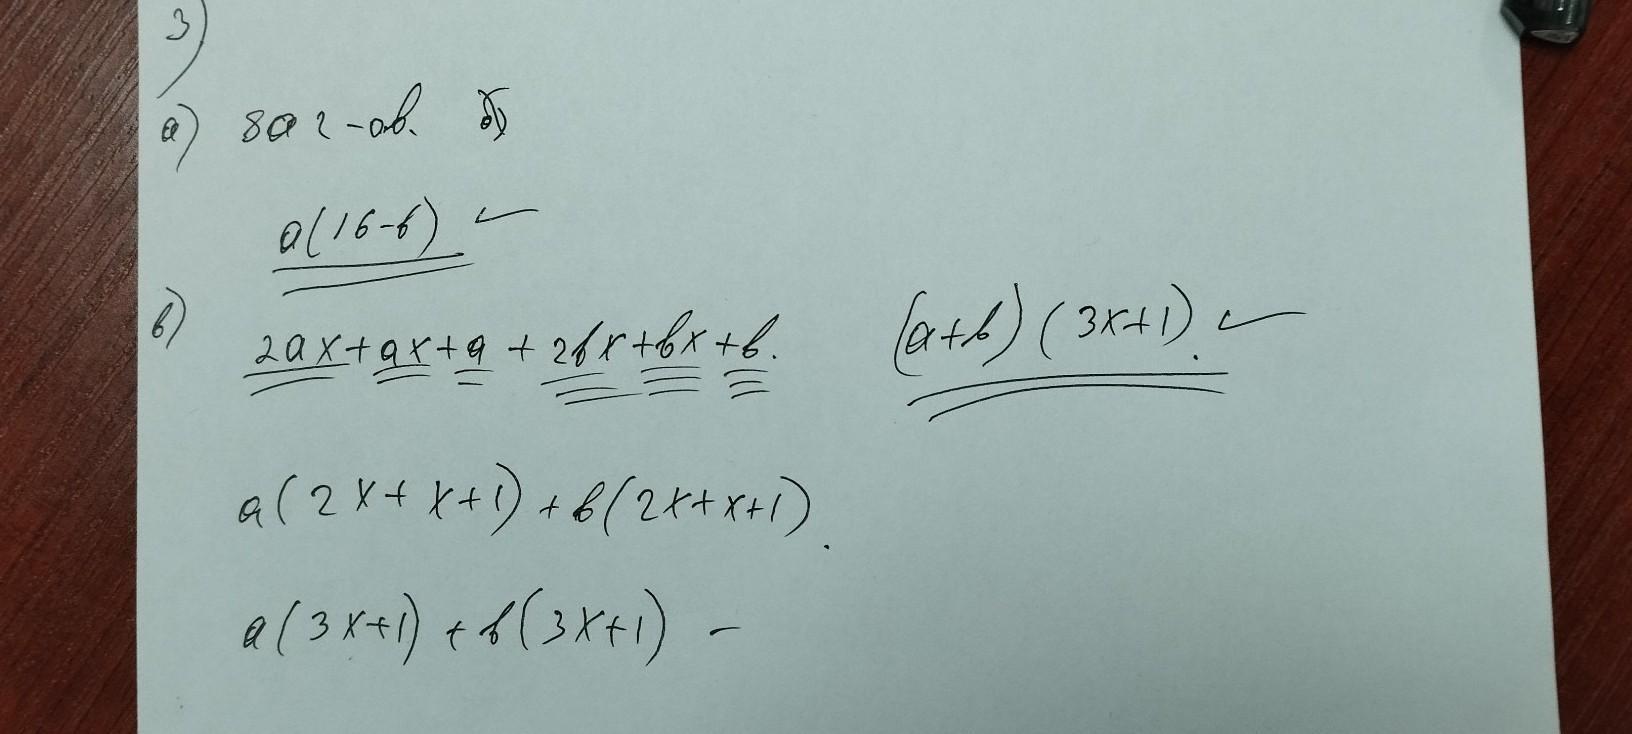 3)
а) 8a2-ab. б)
a(16-b)
в) 2ax+ax+a+2bx+bx+b.
(a+b)(3x+1).
a(2x+x+1)+b(2x+x+1).
a(3x+1)+b(3x+1) -